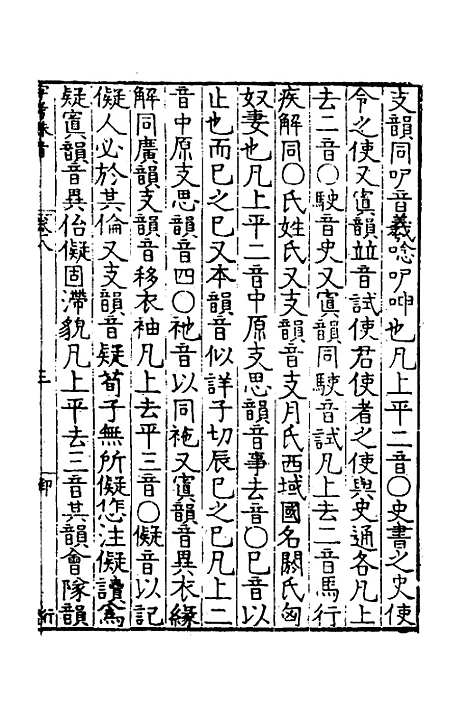 支韻同吚音羲唸吚呻也凡上平二音〇史書之史使
令之使又寘韻竝音試使君使者之使與史通各凡上
去二音〇駛音史又寘韻同駛音試凡上去二音馬行
疾解同〇氏姓氏又支韻音支月氏西域國名閼氏匈
奴妻也凡上平二音中原支思韻音事去音〇巳音以
止也而巳之巳又本韻音似詳子切辰巳之巳凡上二
音中原支思韻音四〇袘音以同袘又寘韻音異衣緣
解同廣韻支韻音移衣袖凡上去平三音〇儗音以記
儗人必於其倫又支韻音疑荀子無所儗㤰注儗讀爲
疑寘韻音異佁儗固滯貌凡上平去三音其韻會隊韻
卷八
三